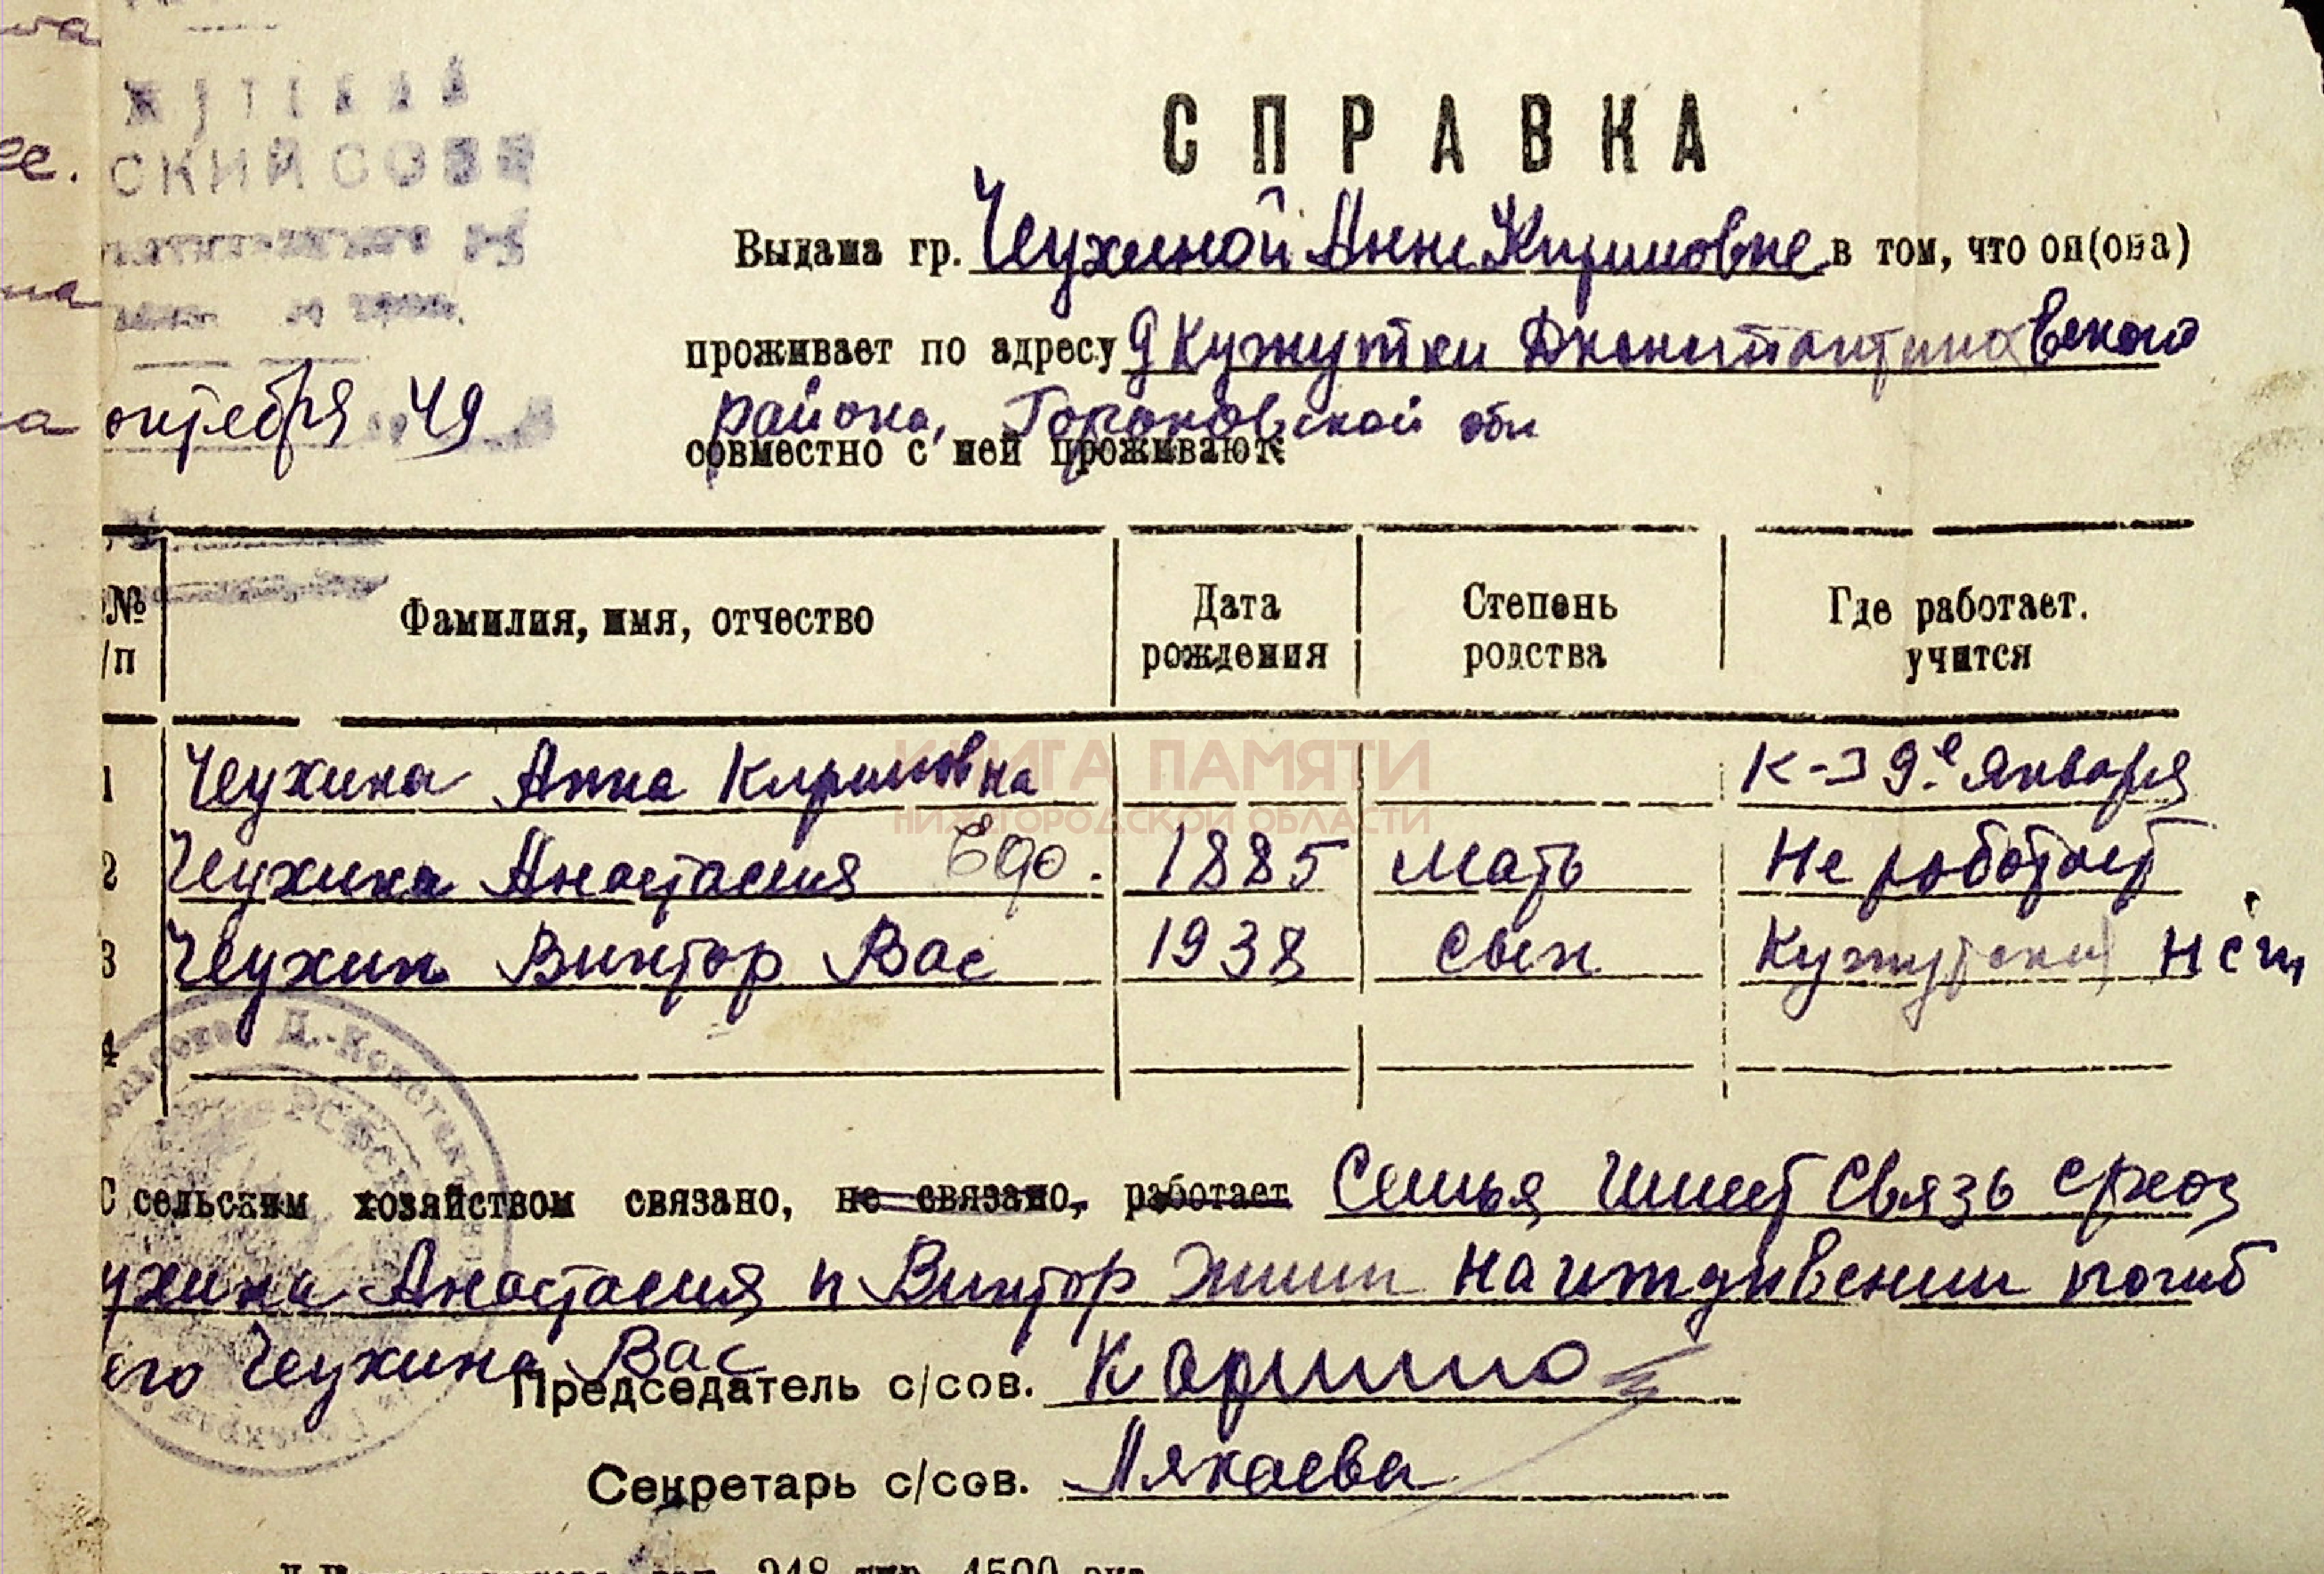 СКИЙ СОВЕ
октября 49
СПРАВКА
Выдана гр. Чеухиной Анне Кирилловне в том, что он(она)
проживает по адресу д Кужутки Дконстантиновского
района, Горьковской обл
совместно с ней проживают:
№ /п Фамилия, имя, отчество Дата рождения Степень родства Где работает. учится
1 Чеухина Анна Кирилловна К-з 9е января
2 Чеухина Анастасия Едо. 1885 мать Не работает
3 Чеухин Виктор Вас 1938 сын Кужутский НСШ
4
КНИГА ПАМЯТИ
НИЖЕГОРОДСКОЙ ОБЛАСТИ
С сельским хозяйством связано, не связано, работает Семья имеет связь с
ухина Анастасия и Виктор жили на иждивении погиб
его Чеухина Вас
Председатель с/сов.
Секретарь с/сов. Лякаева
248 тир. 4500 экз.